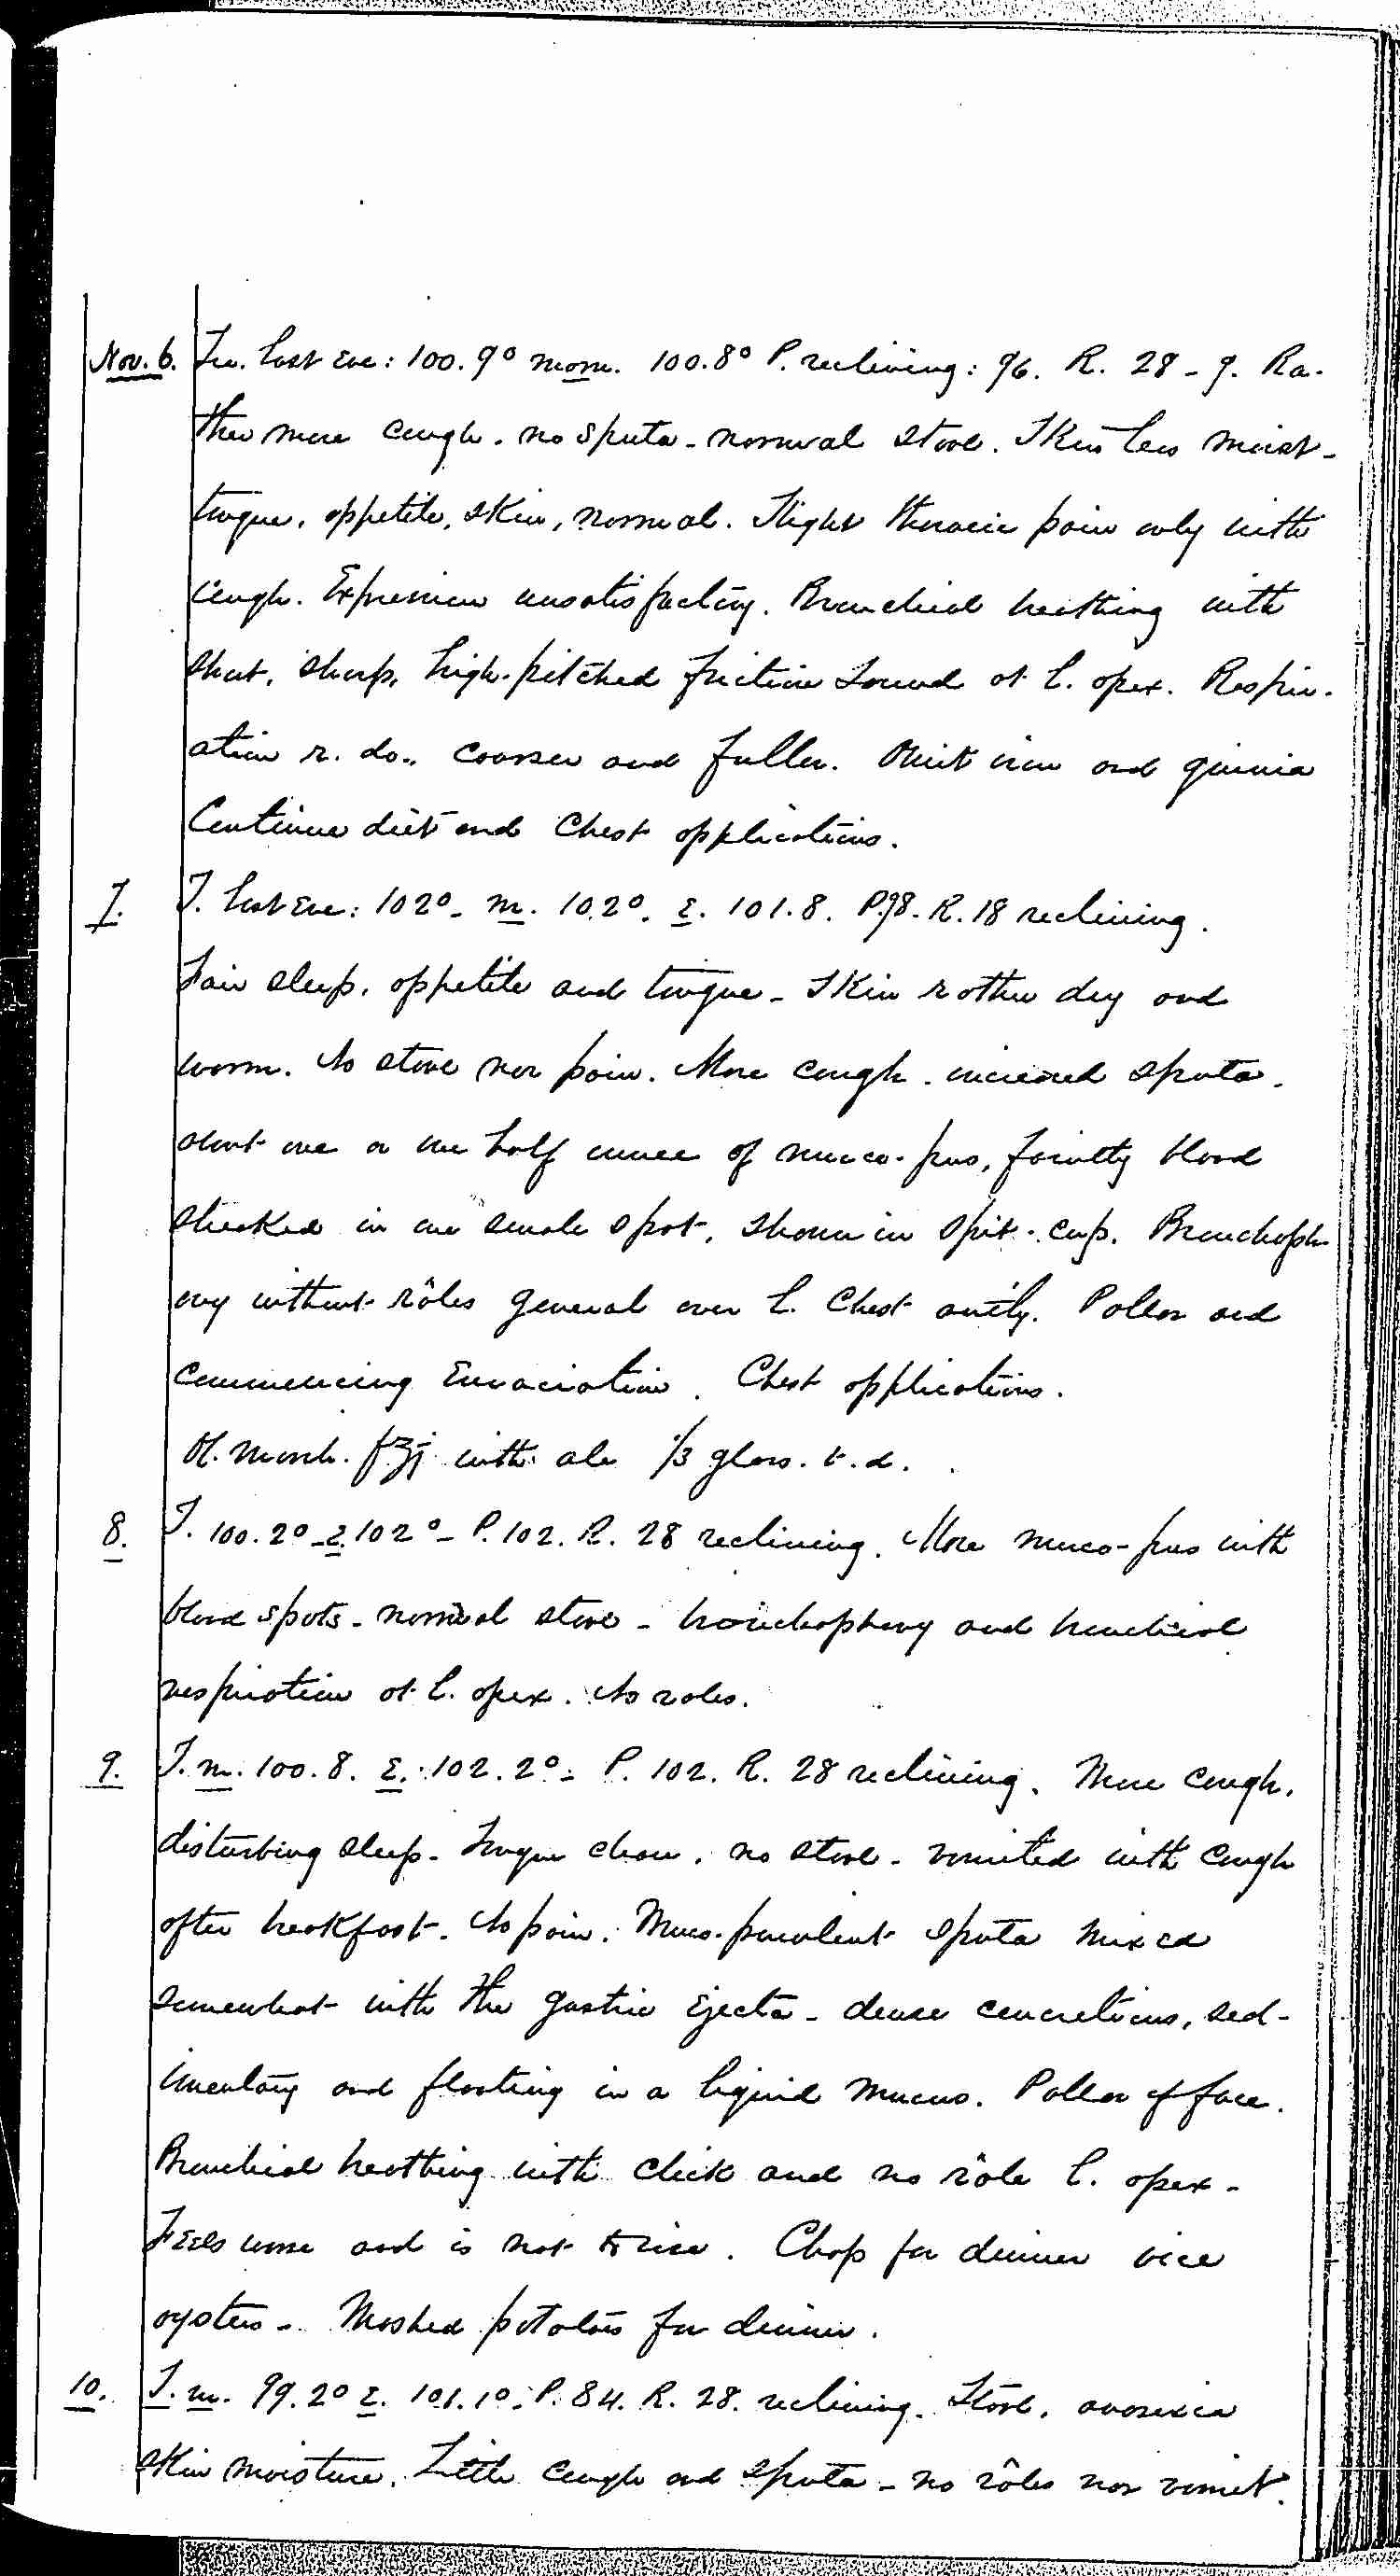 Nov. 6. Tm. last eve: 100.9° morn. 100.8° P. reclining: 96. R. 28 - 9. Ra-
ther more cough. no sputa - normal stool. Skin less moist -
tongue, appetite, skin, normal. Slight thoracic pain only with
cough. Expression unsatisfactory. Bronchial breathing with
short, sharp, high-pitched friction sound at l. apex. Respir-
ation r. do., coarser and fuller. Omit iron and quinia
Continue diet and chest applications.
7. T. last eve: 102° - m. 102°. E. 101.8. P. 98. R. 18 reclining.
Fair sleep, appetite and tongue - Skin rather dry and
warm. No stool nor pain. More cough. increased sputa.
about one or one half ounce of muco-pus, faintly blood
streaked in one small spot, shown in spit-cup. Bronchoph-
ony without râles general over l. chest antly. Pallor and
commencing emaciation. Chest applications.
Ol. morrh. f℥j with ale 1/3 glass. t.d.
8. T. 100.2° - E. 102° - P. 102. R. 28 reclining. More muco-pus with
blood spots - normal stool - bronchophony and bronchial
respiration at l. apex. No rales.
9. T. m. 100.8. E. 102.2° - P. 102. R. 28 reclining. More cough,
disturbing sleep. Tongue clean, no stool - vomited with cough
after breakfast. No pain. Muco-purulent sputa mixed
somewhat with the gastric ejecta - dense concretions, sed-
imentary and floating in a liquid mucus. Pallor of face.
Bronchial breathing with click and no râle l. apex -
Feels worse and is not to rise. Chop for dinner vice
oysters - Mashed potatoes for dinner.
10. T. m. 99.2° E. 101.1° - P. 84. R. 28. reclining. Stool, anorexia
skin moisture. Little cough and sputa - no râles nor vomit.